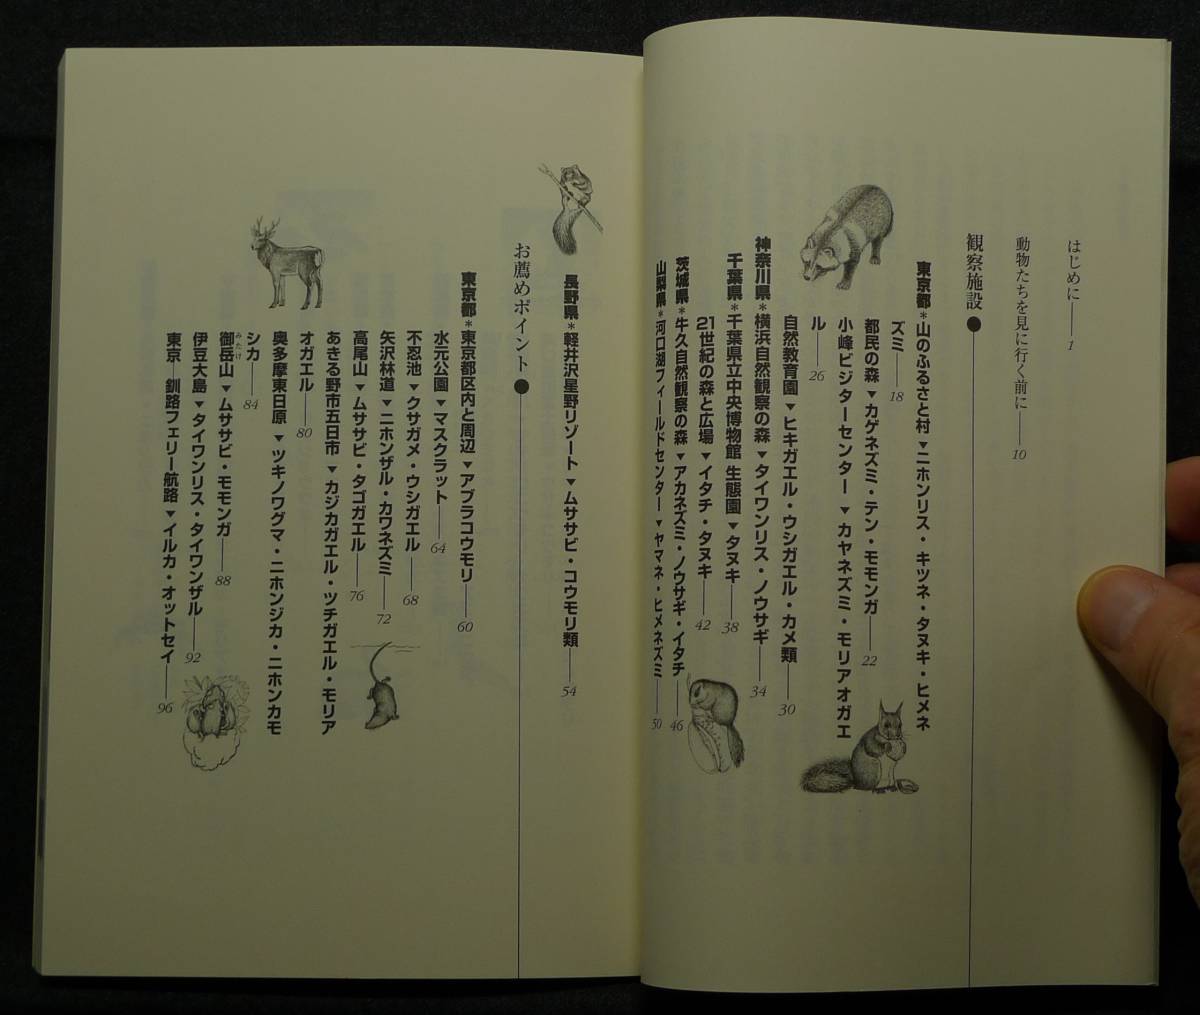 はじめに——1
動物たちを見に行く前に——10
観察施設●
東京都*山のふるさと村▼ニホンリス・キツネ・タヌキ・ヒメネ
ズミ——18
都民の森▼カゲネズミ・テン・モモンガ——22
小峰ビジターセンター▼カヤネズミ・モリアオガエ
ル——26
自然教育園▼ヒキガエル・ウシガエル・カメ類——30
神奈川県*横浜自然観察の森▼タイワンリス・ノウサギ——34
千葉県*千葉県立中央博物館 生態園▼タヌキ——38
21世紀の森と広場▼イタチ・タヌキ——42
茨城県*牛久自然観察の森▼アカネズミ・ノウサギ・イタチ——46
山梨県*河口湖フィールドセンター▼ヤマネ・ヒメネズミ——50
長野県*軽井沢星野リゾート▼ムササビ・コウモリ類——54
お薦めポイント●
東京都*東京都区内と周辺▼アブラコウモリ——60
水元公園▼マスクラット——64
不忍池▼クサガメ・ウシガエル——68
矢沢林道▼ニホンザル・カワネズミ——72
高尾山▼ムササビ・タゴガエル——76
あきる野市五日市▼カジカガエル・ツチガエル・モリア
オガエル——80
奥多摩東日原▼ツキノワグマ・ニホンジカ・ニホンカモ
シカ——84
御岳山▼ムササビ・モモンガ——88
みたけ
伊豆大島▼タイワンリス・タイワンザル——92
東京—釧路フェリー航路▼イルカ・オットセイ——96